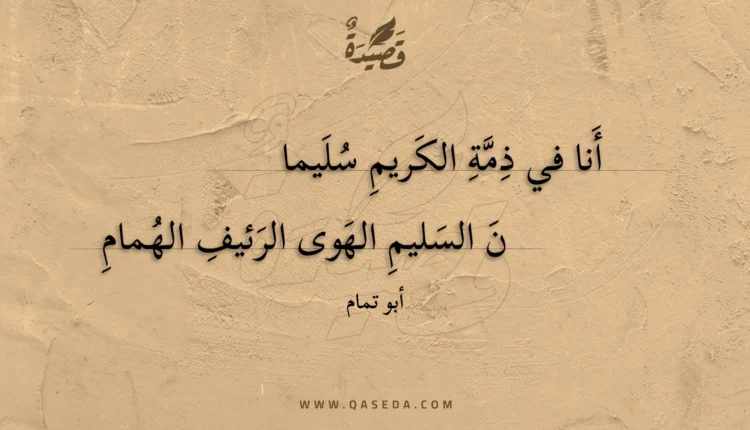 قَصِيدَةٌ
أَنا في ذِمَّةِ الكَريمِ سُلَيما
نَ السَليمِ الهَوى الرَئيفِ الهُمامِ
أبو تمام
WWW.QASEDA.COM